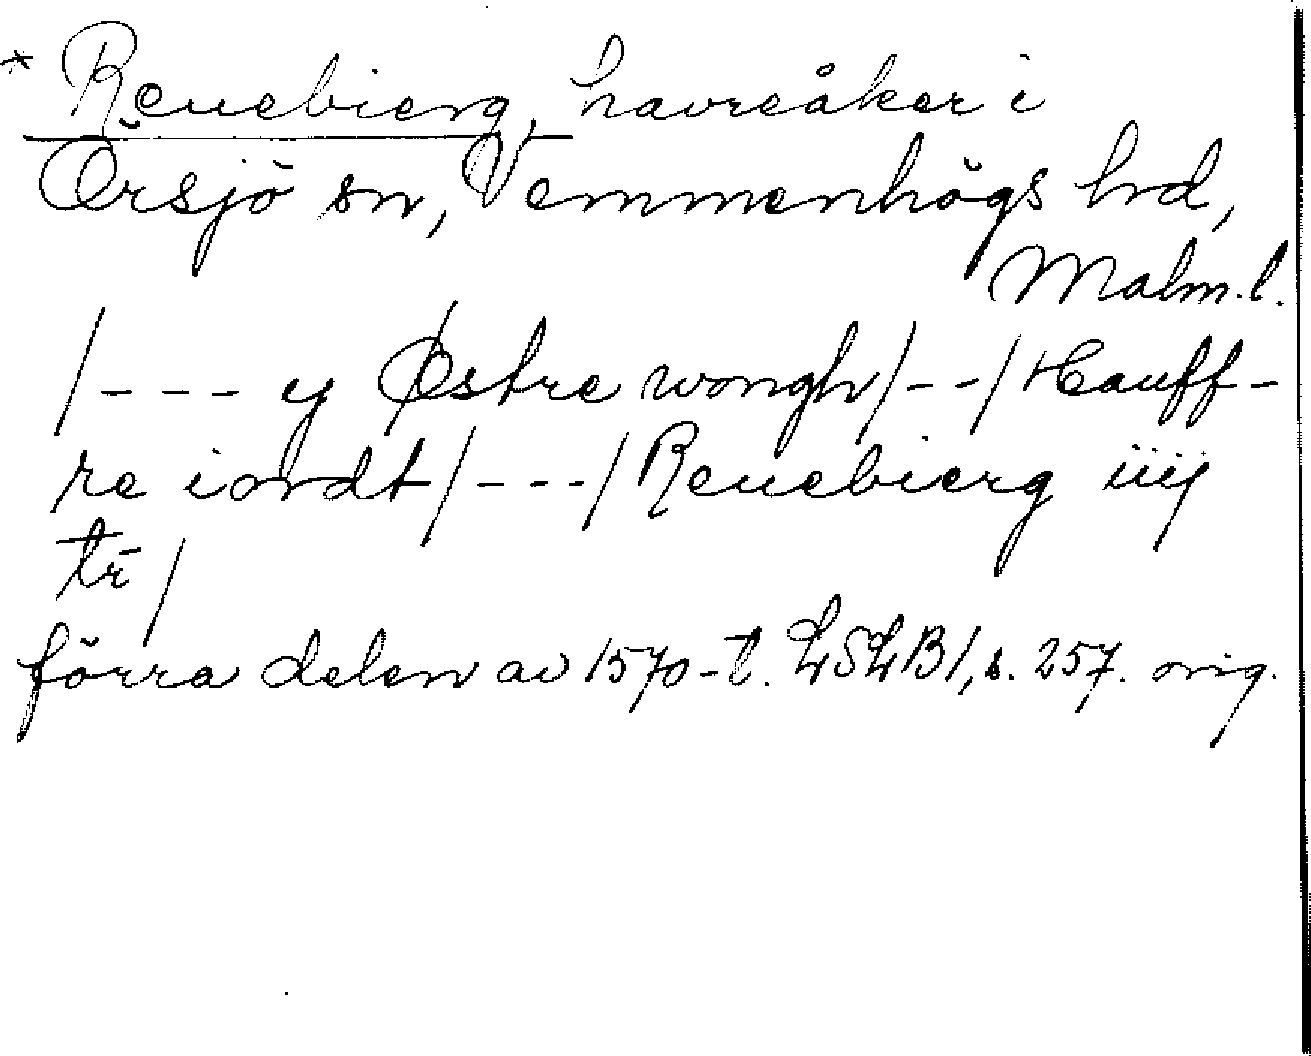 * Reuebierg, havreåker i
Örsjö sn, Vemmenhögs hd,
Malm.l.
/--- y Østre wongh/--/Hauff-
re iordt/---/Reuebierg iiij
tr̄/
förra delen av 1570-t. LSLB1, s. 257. orig.